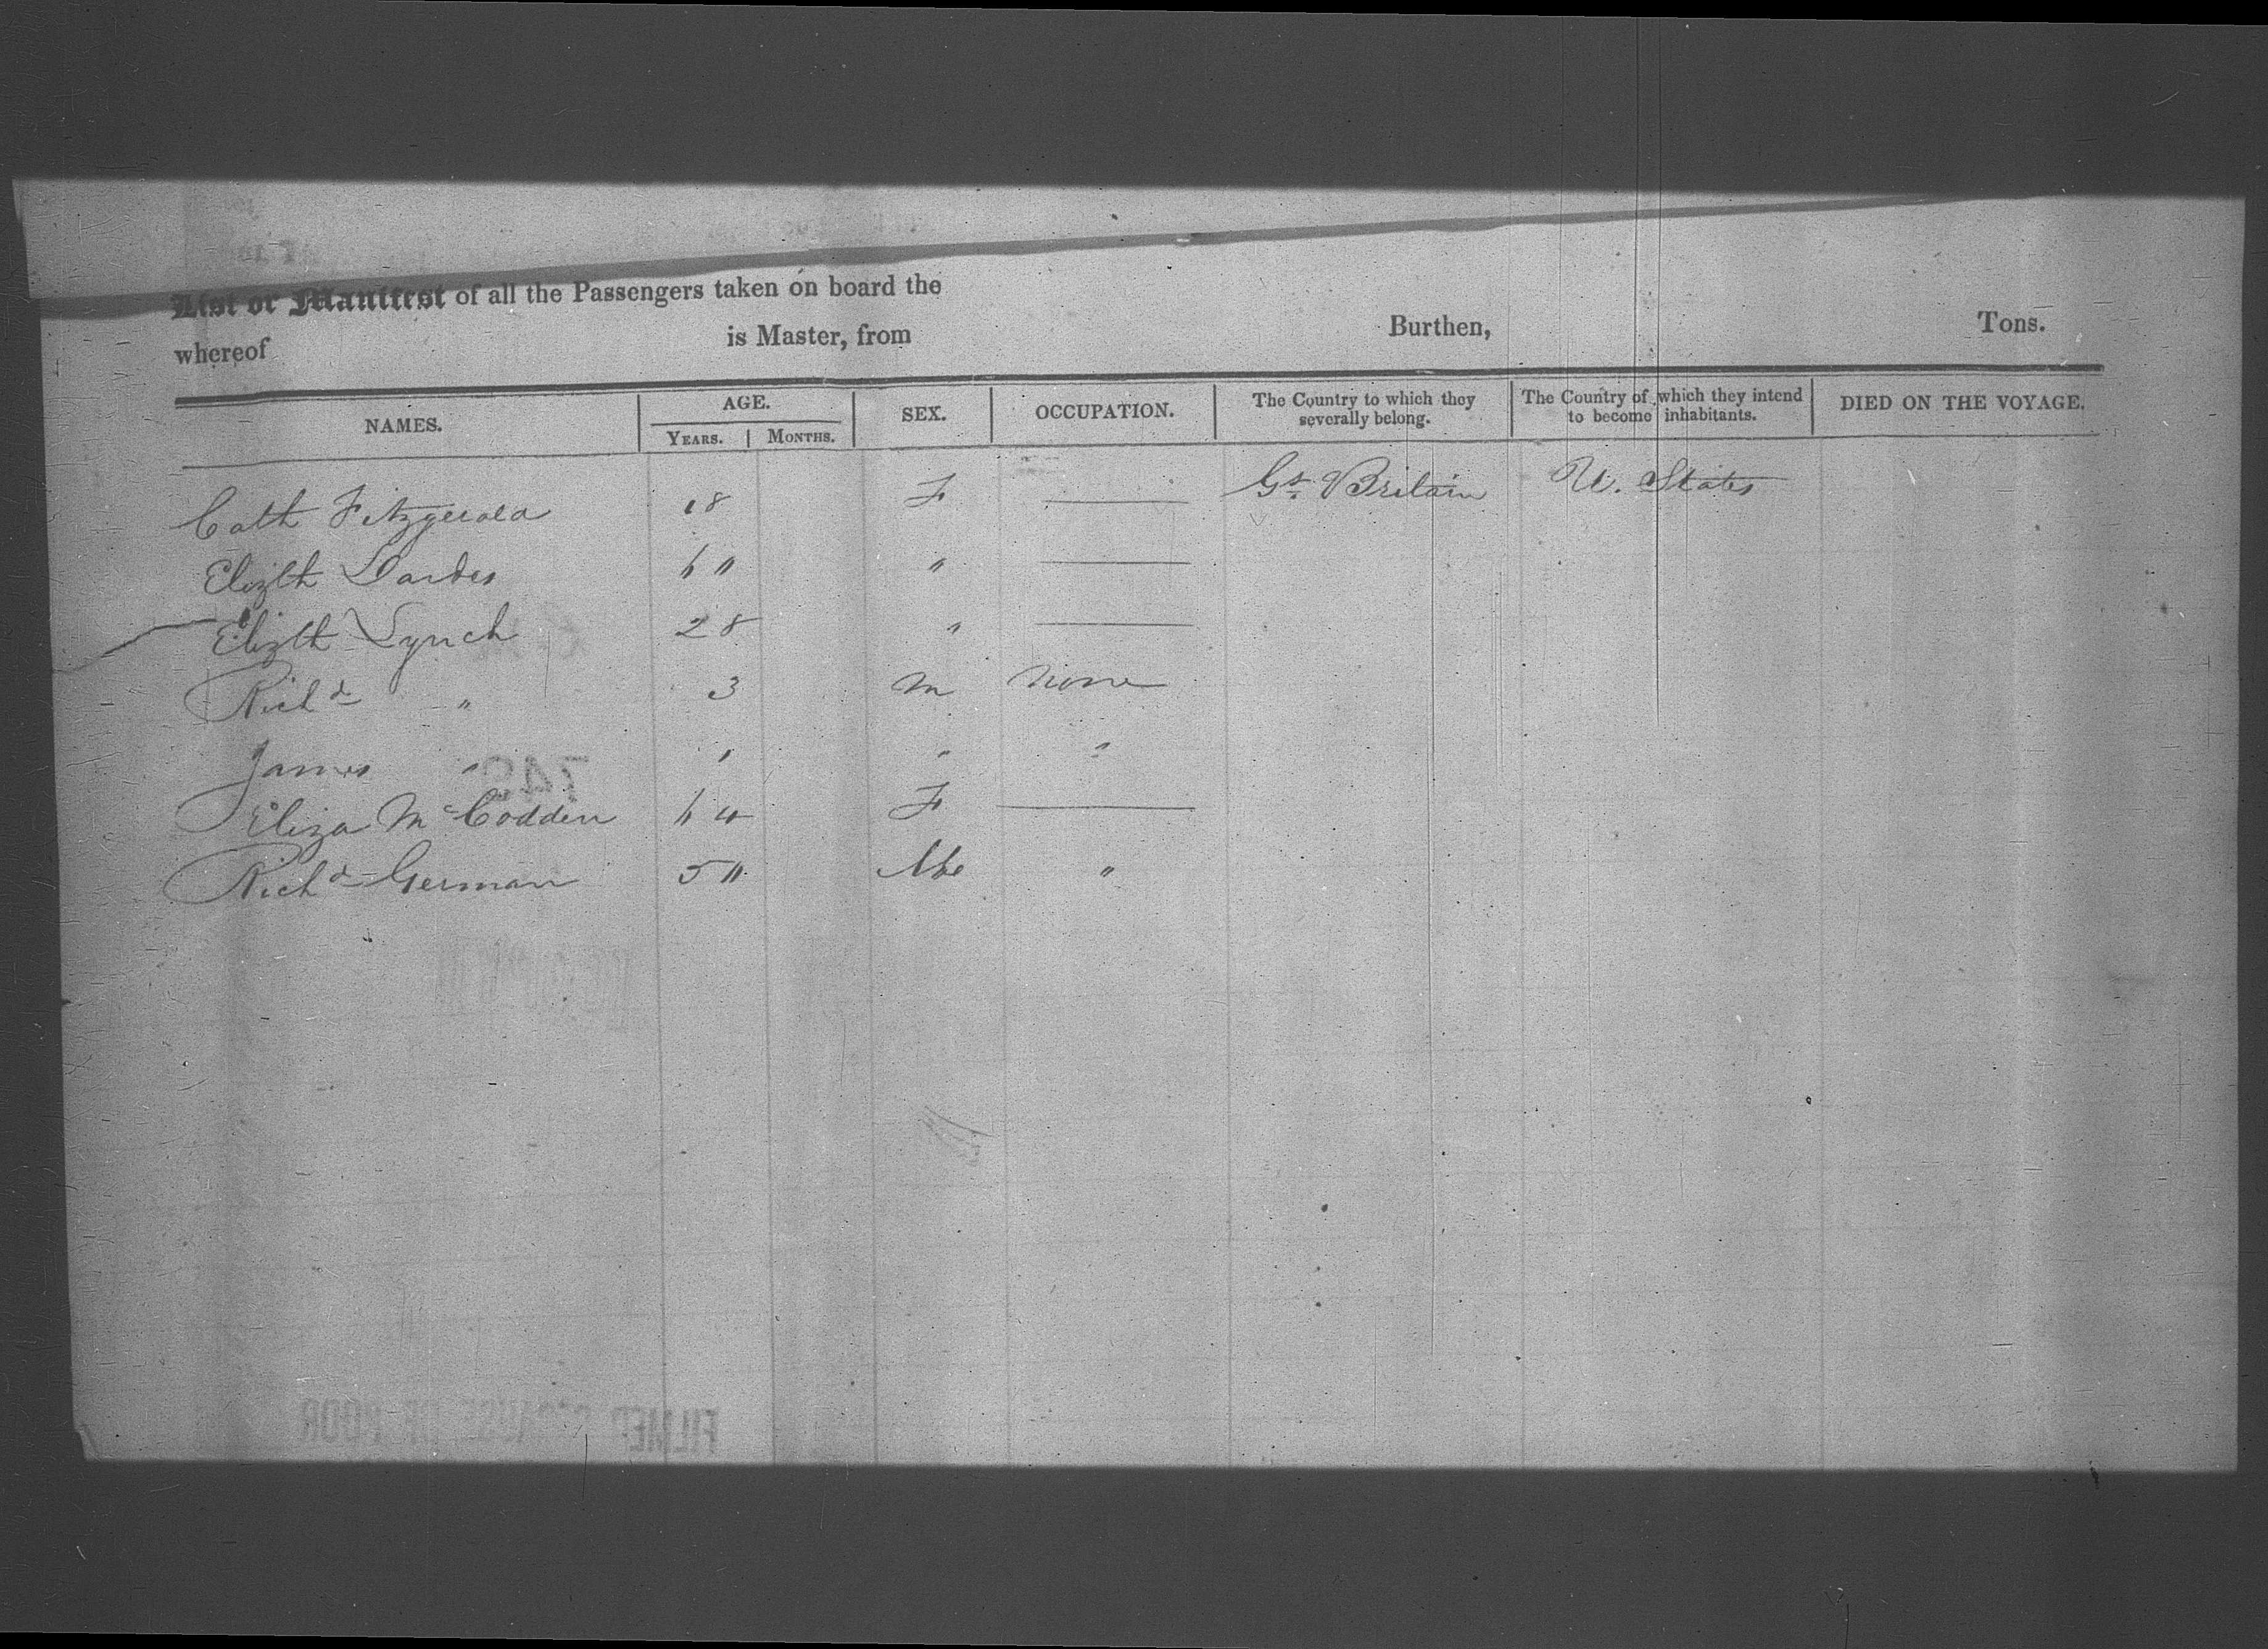 List or Manifest of all the Passengers taken on board the
whereof is Master, from Burthen, Tons.
NAMES. AGE. YEARS. MONTHS. SEX. OCCUPATION. The Country to which they severally belong. The Country of which they intend to become inhabitants. DIED ON THE VOYAGE.
Cath Fitzgerald 18 F — Gt. Britain U. States
Elizth " —
Elizth Lynch 28 " —
Richd " 3 M None
James " 1 " "
Eliza McCodden F —
Richd German "
742
FILMED BECAUSE OF POOR